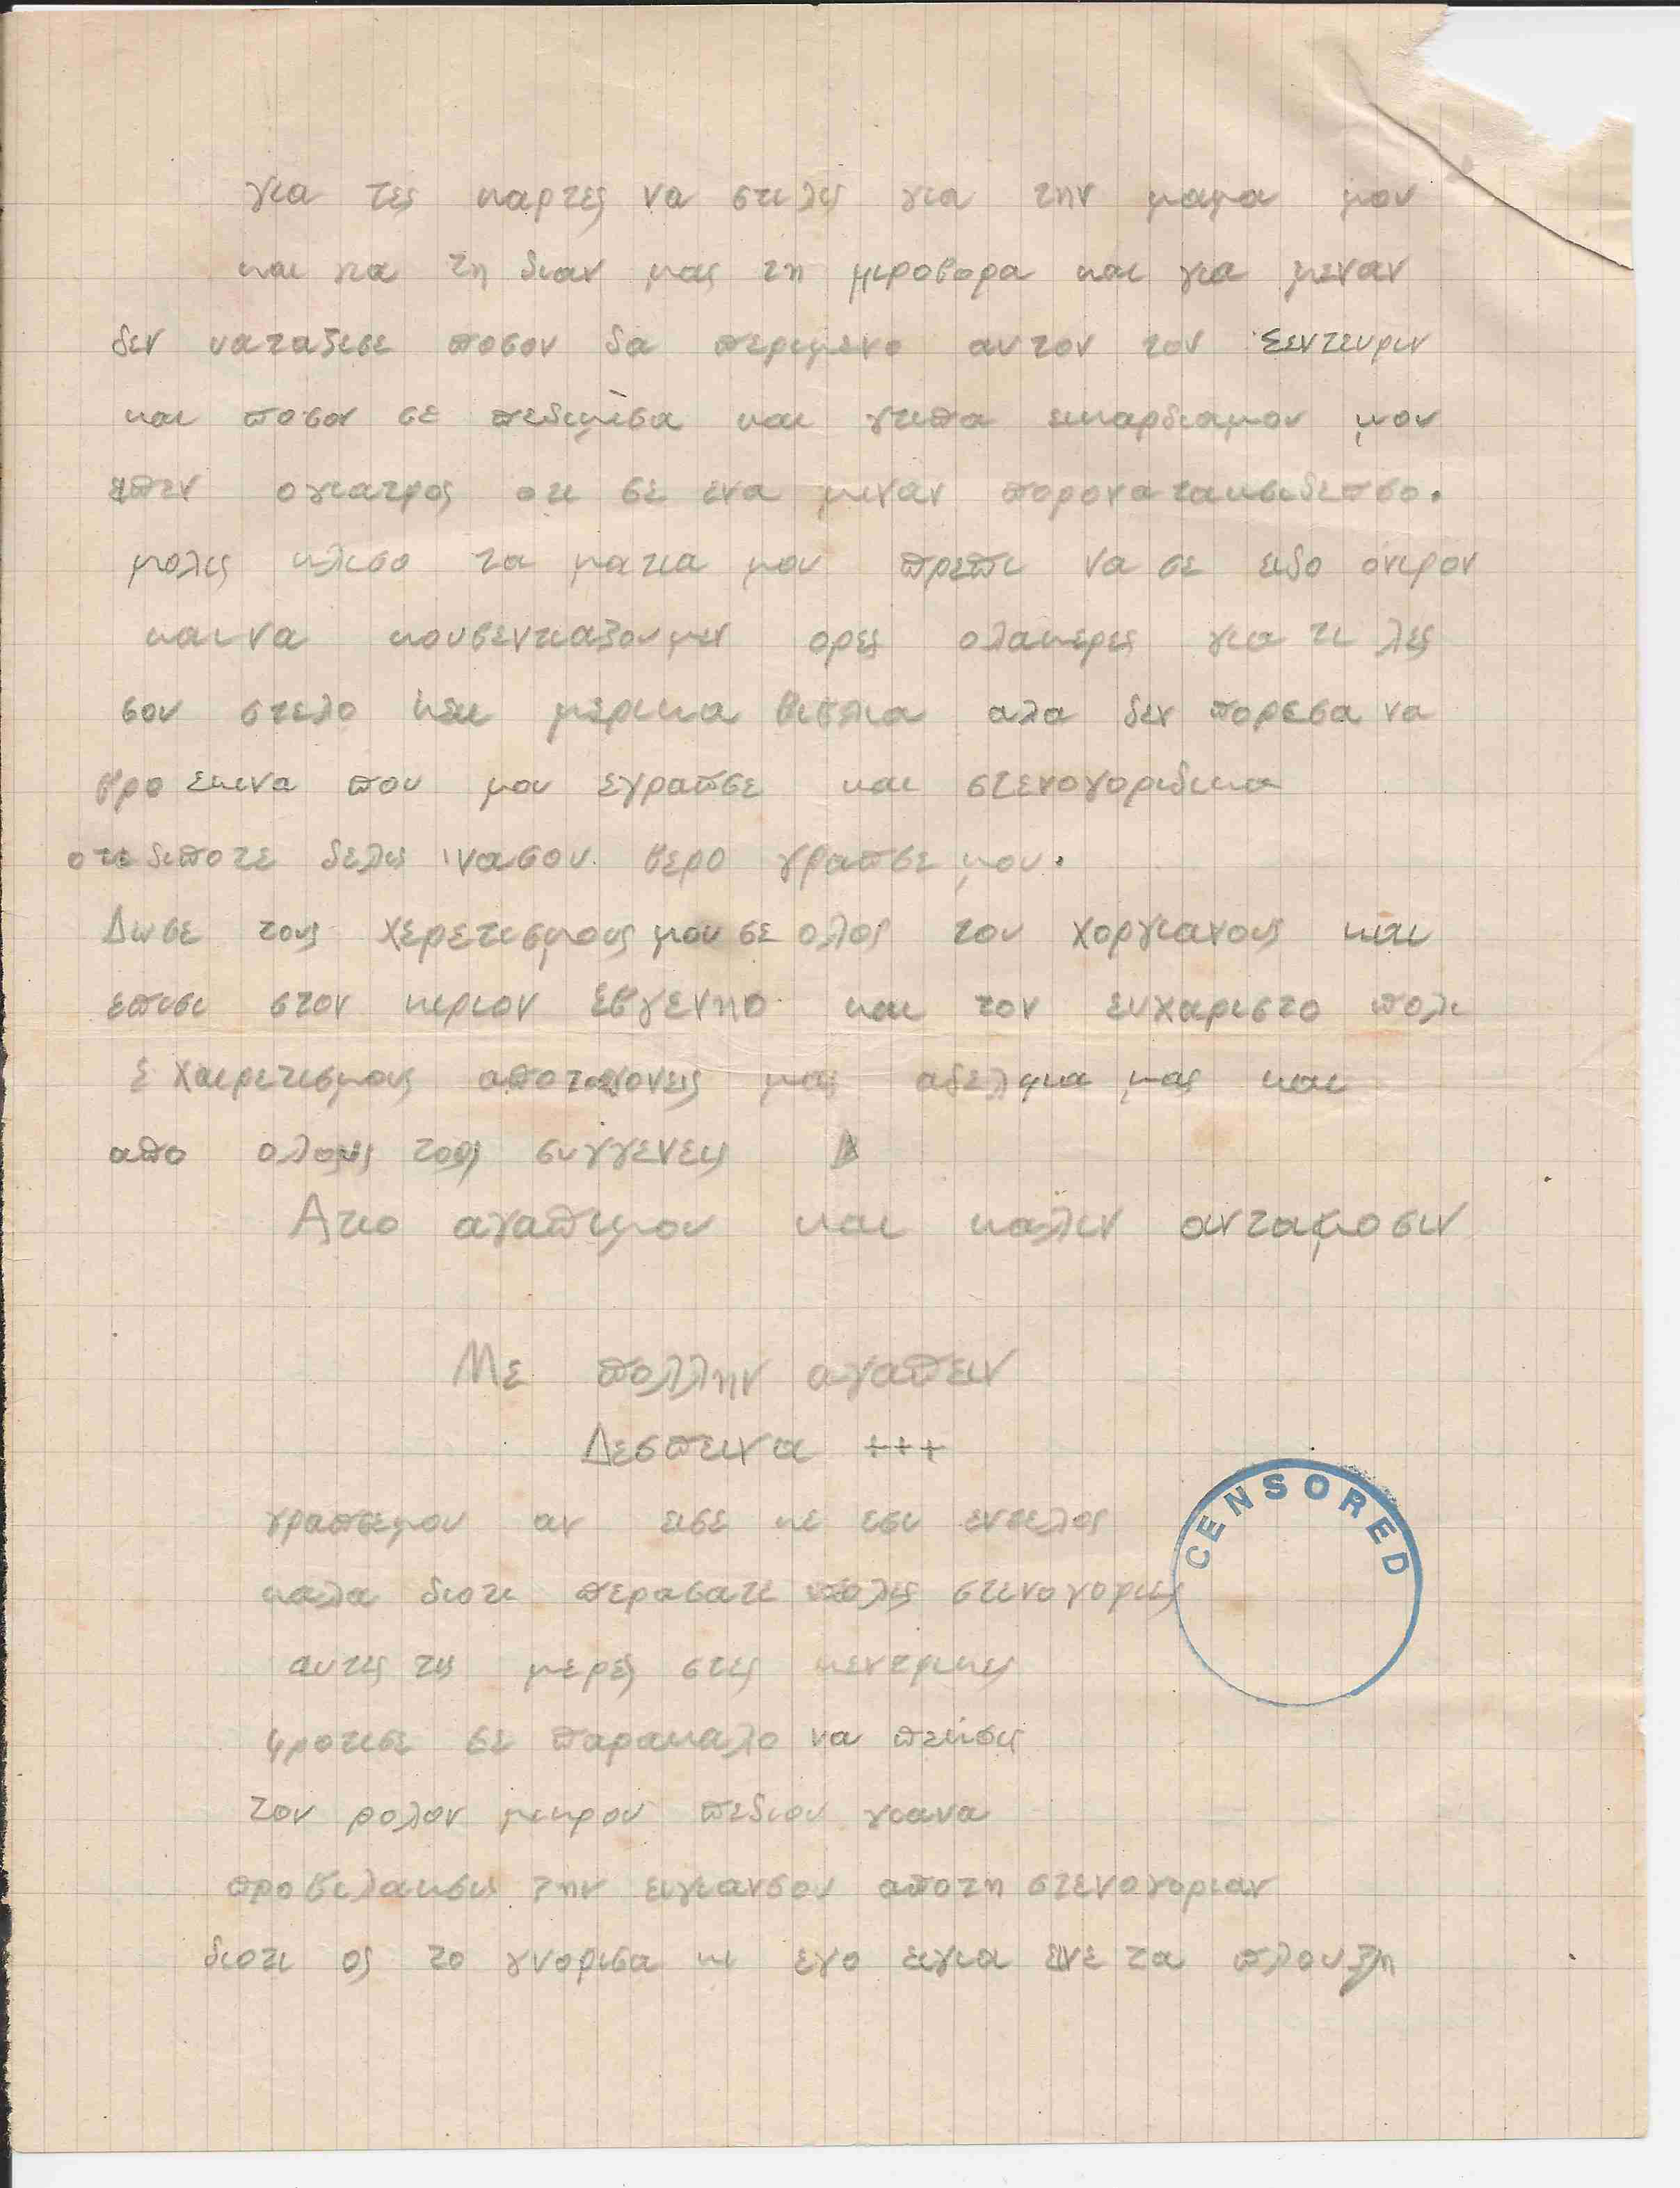 για τες καρτες να στιλις για την μαμα μου
και για τη διαν μας τη μιροβορα και για μεναν
δεν υαταξεσε ποσον δα περιμενο αυτον τον Δευτευριν
και ποσον σε πεδιμισα και γτιπα εικαρδιαμου μου
επεν ογιατρος οτι σε ενα μιναν πορονα ταικσιδεπσο.
μολις κλισο τα ματια μου πρεπι να σε ειδο ονιρον
και να κουβεντιαζουμεν ορες ολακερες για τι λες
σου στελο κε μερικα βιβλια αλα δεν πορεσα να
βρο εκινα που μου εγραπσε και στενογοριδικα
οτε διποτε δελις νασου βερο γραπσε μου.
Δωσε τους χερετισμους μου σε ολος του χοργιανους και
επισι στον κιριον Εβγενηο και τον ευχαριστο πολι
Εχαιρετισμους αποτογονεις μας αδελφια μας και
απο ολους τους συγγενεις
Ατιο αγαπιμου και καλιν ανταμοσιν
Με πολλην αγαπειν
Δεσπεινα +++
γραπσεμου αν εισε κε εσι εντελος
καλα διοτι περασατε πολες στενογοριες
αυτες τις μερες στες κεντρικες
φροτισε σε παρακαλο να πεκσις
τον ρολον μικρου πεδιου γιανα
προβιλακσις την ειγιανσου αποτη στενογοριαν
διοτι ος το γνορισα κι εγο ειγια ενε τα πλουτη
CENSORED